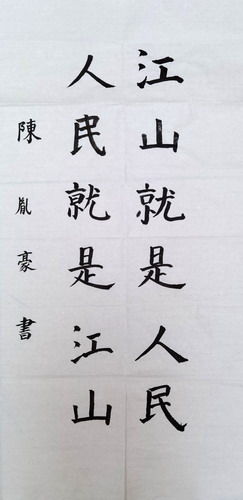 江山就是人民
人民就是江山
陳胤豪書